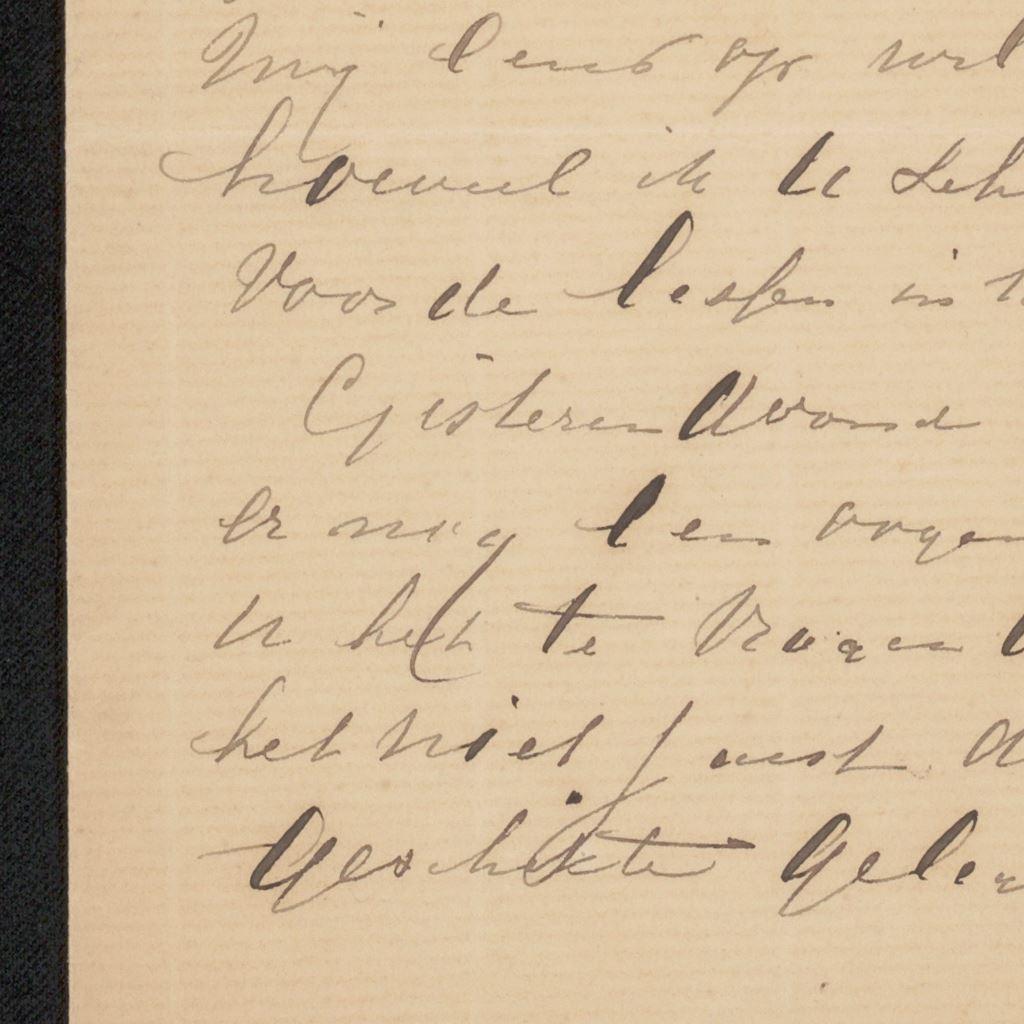 Mij eens op wil
hoeveel ik U sch
voor de lessen in
Gisteren Avond
er nog een oogen
U het te vragen
het niet juist
geschikte gele